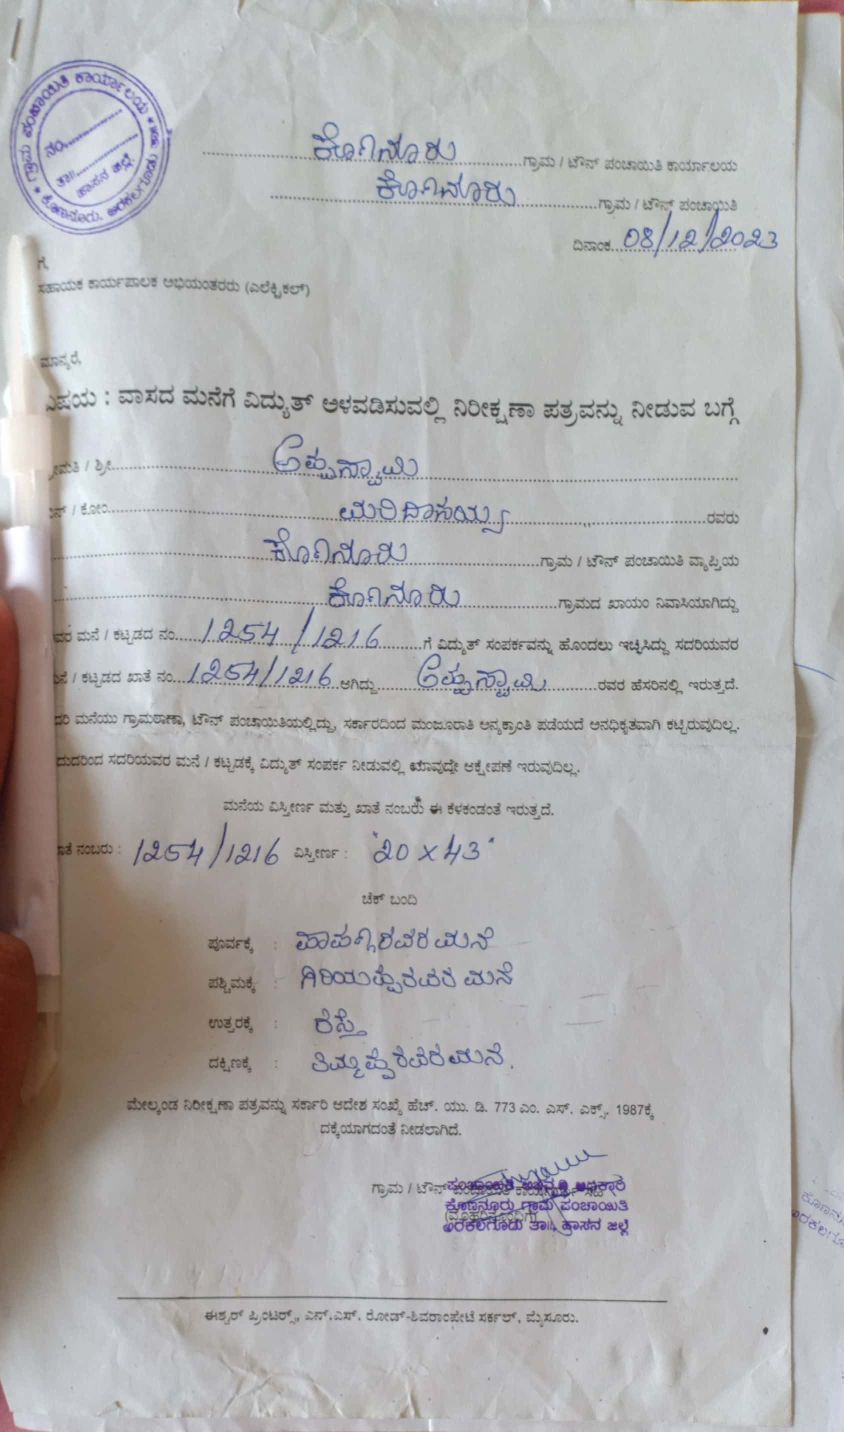 ಗ್ರಾಮ ಪಂಚಾಯಿತಿ ಕಾರ್ಯಾಲಯ
ನಂ..............
ತಾ॥..............
ಹಾಸನ ಜಿಲ್ಲೆ
ಕೊಣನೂರು, ಅರಕಲಗೂಡು
ಕೊಣನೂರು ಗ್ರಾಮ / ಟೌನ್ ಪಂಚಾಯಿತಿ ಕಾರ್ಯಾಲಯ
ಕೊಣನೂರು ಗ್ರಾಮ / ಟೌನ್ ಪಂಚಾಯಿತಿ
ದಿನಾಂಕ 08/12/2023
ಗೆ,
ಸಹಾಯಕ ಕಾರ್ಯಪಾಲಕ ಅಭಿಯಂತರರು (ಎಲೆಕ್ಟ್ರಿಕಲ್)
ಮಾನ್ಯರೆ,
ವಿಷಯ : ವಾಸದ ಮನೆಗೆ ವಿದ್ಯುತ್ ಅಳವಡಿಸುವಲ್ಲಿ ನಿರೀಕ್ಷಣಾ ಪತ್ರವನ್ನು ನೀಡುವ ಬಗ್ಗೆ
ಶ್ರೀಮತಿ / ಶ್ರೀ ಅಪ್ಪುಸ್ವಾಮಿ
ಬಿನ್ / ಕೋಂ ಮರಿದಾಸಯ್ಯ ರವರು
ಕೊಣನೂರು ಗ್ರಾಮ / ಟೌನ್ ಪಂಚಾಯಿತಿ ವ್ಯಾಪ್ತಿಯ
ಕೊಣನೂರು ಗ್ರಾಮದ ಖಾಯಂ ನಿವಾಸಿಯಾಗಿದ್ದು
ವರ ಮನೆ / ಕಟ್ಟಡದ ನಂ 1254/1216 ಗೆ ವಿದ್ಯುತ್ ಸಂಪರ್ಕವನ್ನು ಹೊಂದಲು ಇಚ್ಛಿಸಿದ್ದು ಸದರಿಯವರ
ಮನೆ / ಕಟ್ಟಡದ ಖಾತೆ ನಂ 1254/1216 ಆಗಿದ್ದು ಅಪ್ಪುಸ್ವಾಮಿ ರವರ ಹೆಸರಿನಲ್ಲಿ ಇರುತ್ತದೆ.
ದರಿ ಮನೆಯು ಗ್ರಾಮಠಾಣಾ, ಟೌನ್ ಪಂಚಾಯಿತಿಯಲ್ಲಿದ್ದು, ಸರ್ಕಾರದಿಂದ ಮಂಜೂರಾತಿ ಅನ್ಯಕ್ರಾಂತಿ ಪಡೆಯದೆ ಅನಧಿಕೃತವಾಗಿ ಕಟ್ಟಿರುವುದಿಲ್ಲ.
ದುದರಿಂದ ಸದರಿಯವರ ಮನೆ / ಕಟ್ಟಡಕ್ಕೆ ವಿದ್ಯುತ್ ಸಂಪರ್ಕ ನೀಡುವಲ್ಲಿ ಯಾವುದೇ ಆಕ್ಷೇಪಣೆ ಇರುವುದಿಲ್ಲ.
ಮನೆಯ ವಿಸ್ತೀರ್ಣ ಮತ್ತು ಖಾತೆ ನಂಬರು ಈ ಕೆಳಕಂಡಂತೆ ಇರುತ್ತದೆ.
ಾತೆ ನಂಬರು : 1254/1216 ವಿಸ್ತೀರ್ಣ : "20 x 43"
ಚೆಕ್ ಬಂದಿ
ಪೂರ್ವಕ್ಕೆ : ಪಾಪಣ್ಣರವರ ಮನೆ
ಪಶ್ಚಿಮಕ್ಕೆ : ಗಿರಿಯಪ್ಪರವರ ಮನೆ
ಉತ್ತರಕ್ಕೆ : ರಸ್ತೆ
ದಕ್ಷಿಣಕ್ಕೆ : ತಿಮ್ಮಪ್ಪರವರ ಮನೆ.
ಮೇಲ್ಕಂಡ ನಿರೀಕ್ಷಣಾ ಪತ್ರವನ್ನು ಸರ್ಕಾರಿ ಆದೇಶ ಸಂಖ್ಯೆ ಹೆಚ್. ಯು. ಡಿ. 773 ಎಂ. ಎಸ್. ಎಕ್ಸ್. 1987ಕ್ಕೆ
ದಕ್ಕೆಯಾಗದಂತೆ ನೀಡಲಾಗಿದೆ.
ಗ್ರಾಮ / ಟೌನ್ ಪಂಚಾಯಿತಿ
ಪಂಚಾಯಿತಿ ಅಭಿವೃದ್ಧಿ ಅಧಿಕಾರಿ
ಕೊಣನೂರು ಗ್ರಾಮ ಪಂಚಾಯಿತಿ
ಅರಕಲಗೂಡು ತಾ॥, ಹಾಸನ ಜಿಲ್ಲೆ
ಈಶ್ವರ್ ಪ್ರಿಂಟರ್ಸ್, ಎನ್.ಎಸ್. ರೋಡ್-ಶಿವರಾಂಪೇಟೆ ಸರ್ಕಲ್, ಮೈಸೂರು.